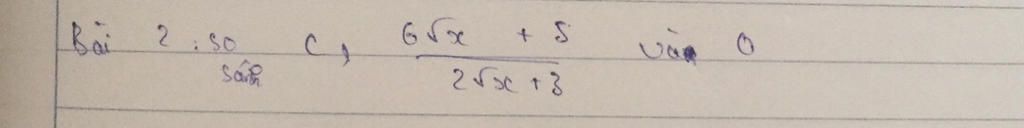 Bài 2 : so sánh c, (6√x + 5)/(2√x + 3) và 0